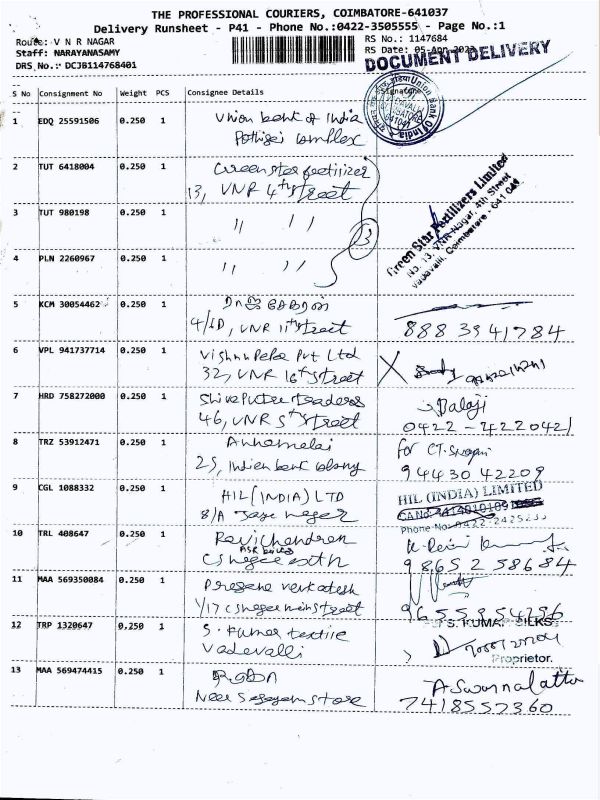 THE PROFESSIONAL COURIERS, COIMBATORE-641037
Delivery Runsheet - P41 - Phone No.:0422-3505555 - Page No.:1
Route: V N R NAGAR
RS No.: 1147684
Staff: NARAYANASAMY
RS Date: 05-Apr-2023
DRS No.: DCJB114768401
DOCUMENT DELIVERY
S No Consignment No Weight PCS Consignee Details Signature
1 EDQ 25591506 0.250 1 Union bank of India
Pothigai complex
2 TUT 6418004 0.250 1 Greenstar fertilizer
13, VNR 4th street
3 TUT 980198 0.250 1 " "
3
Green Star Fertilizers Limited
No. 13, VNR Nagar, 4th Street
Vadavalli, Coimbatore - 641 041
4 PLN 2260967 0.250 1 " "
5 KCM 30054462 0.250 1
4/1D, VNR 11th street 888 39 41784
6 VPL 941737714 0.250 1 Vishnu Peke Pvt Ltd
32, VNR 16th street
7 HRD 758272000 0.250 1 Shiva Putra traders Balaji
46, VNR 5th street 0422-4220421
8 TRZ 53912471 0.250 1 Annamalai for CT.
25, Indian bank colony 94430 42209
9 CGL 1088332 0.250 1 HIL (INDIA) LTD HIL (INDIA) LIMITED
8/A Jaya nagar
Phone No: 0422-2425233
10 TRL 408647 0.250 1 Ravichandran
98652 58684
11 MAA 569350084 0.250 1 Prasana Venkatesh
1/17 C S nagar main street 9655854296
12 TRP 1320647 0.250 1 S. Kumar textile S. KUMAR SILKS
Vadavalli Proprietor.
13 MAA 569474415 0.250 1 A Swarnalatha
Near store 7418557360